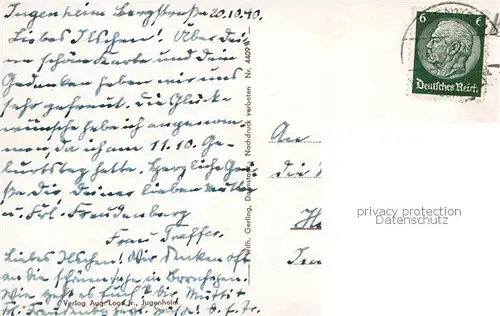 Jugenheim Bergstraße 20.10.40.
Liebes Ilschen! Über Dei-
ne schöne Karte und Dein
Gedenken haben wir uns
sehr gefreut. Die Glück-
wünsche habe ich angenom-
men, da ich am 11.10. Ge-
burtstag hatte. Herzliche Grü-
ße Dir, Deiner lieben Mutter
u. Frl. Freudenberg
Frau Treffer.
Liebes Ilschen! Wir denken oft
an die schönen Tage in
Wie geht es Euch? Die Mutti
Verlag Aug. Loos Jr., Jugenheim
Fr. Freudenberg
Wilh. Gerling, Darmstadt, Nachdruck verboten Nr. 4409
6 6
Deutsches Reich
An
die
privacy protection
Datenschutz